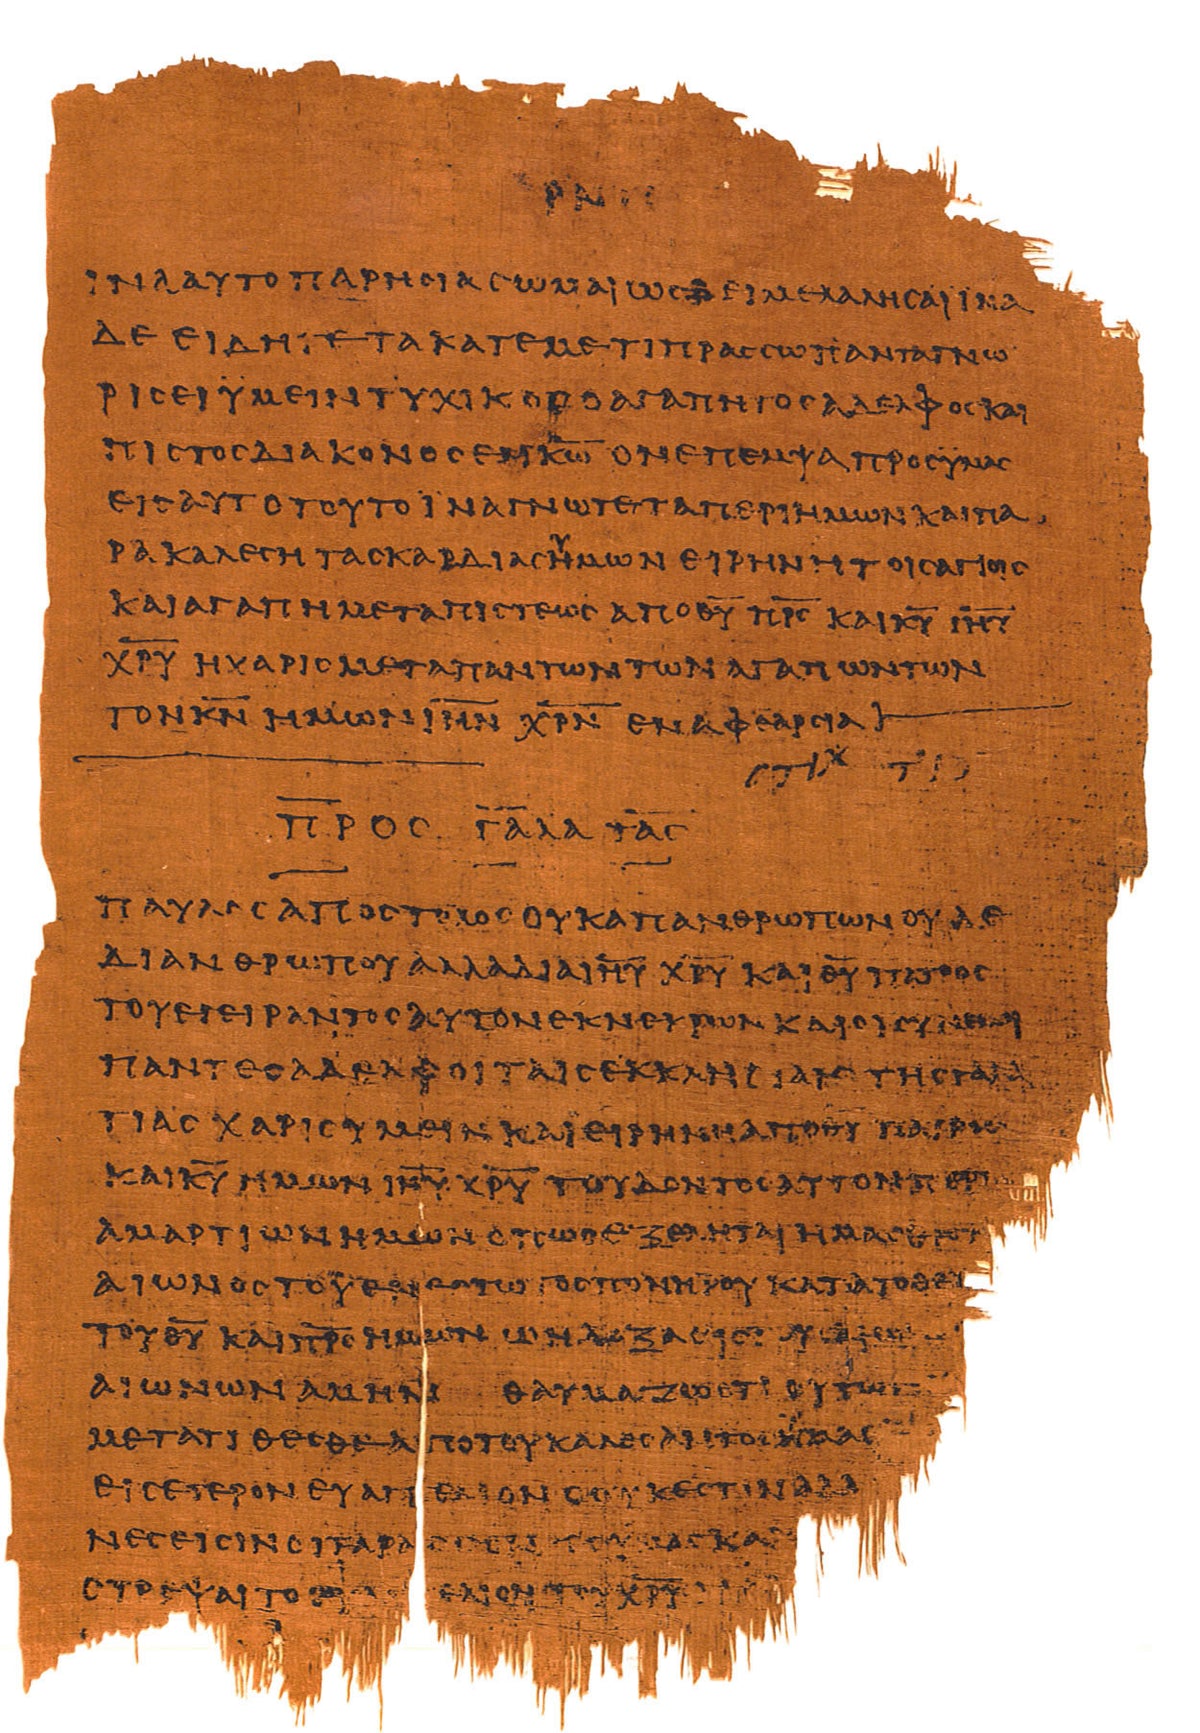 ΡΝ
ΙΝΑ ΑΥΤΟ ΠΑΡΗСΙΑСΩΜΑΙ ΩС ΔΕΙ ΜΕ ΛΑΛΗСΑΙ ΙΝΑ
ΔΕ ΕΙΔΗΤΕ ΤΑ ΚΑΤ ΕΜΕ ΤΙ ΠΡΑССΩ ΠΑΝΤΑ ΓΝΩ
ΡΙСΕΙ ΫΜΕΙΝ ΤΥΧΙΚΟС Ο ΑΓΑΠΗΤΟС ΑΔΕΛΦΟС ΚΑΙ
ΠΙСΤΟС ΔΙΑΚΟΝΟС ΕΝ Κ̅Ω̅ ΟΝ ΕΠΕΜΨΑ ΠΡΟС ΫΜΑС
ΕΙС ΑΥΤΟ ΤΟΥΤΟ ΙΝΑ ΓΝΩΤΕ ΤΑ ΠΕΡΙ ΗΜΩΝ ΚΑΙ ΠΑ
ΡΑΚΑΛΕСΗ ΤΑС ΚΑΡΔΙΑС ΥΗΜΩΝ ΕΙΡΗΝΗ ΤΟΙС ΑΓΙΟΙС
ΚΑΙ ΑΓΑΠΗ ΜΕΤΑ ΠΙСΤΕΩС ΑΠΟ Θ̅Υ̅ Π̅Ρ̅С̅ ΚΑΙ Κ̅Υ̅ Ι̅Η̅Υ̅
Χ̅Ρ̅Υ̅ Η ΧΑΡΙС ΜΕΤΑ ΠΑΝΤΩΝ ΤΩΝ ΑΓΑΠΩΝΤΩΝ
ΤΟΝ Κ̅Ν̅ ΗΜΩΝ Ι̅Η̅Ν̅ Χ̅Ρ̅Ν̅ ΕΝ ΑΦΘΑΡСΙΑ
СΤΙΧ
ΠΡΟС ΓΑΛΑΤΑС
ΠΑΥΛΟС ΑΠΟСΤΟΛΟС ΟΥΚ ΑΠ ΑΝΘΡΩΠΩΝ ΟΥΔΕ
ΔΙ ΑΝΘΡΩΠΟΥ ΑΛΛΑ ΔΙΑ Ι̅Η̅Υ̅ Χ̅Ρ̅Υ̅ ΚΑΙ Θ̅Υ̅ ΠΑΤΡΟС
ΤΟΥ ΕΓΕΙΡΑΝΤΟС ΑΥΤΟΝ ΕΚ ΝΕΚΡΩΝ ΚΑΙ ΟΙ СΥΝ ΕΜΟΙ
ΠΑΝΤΕС ΑΔΕΛΦΟΙ ΤΑΙС ΕΚΚΛΗСΙΑΙС ΤΗС ΓΑΛΑ
ΤΙΑС ΧΑΡΙС ΥΜΕΙΝ ΚΑΙ ΕΙΡΗΝΗ ΑΠΟ Θ̅Υ̅ ΠΑΤΡΟС
ΚΑΙ Κ̅Υ̅ ΗΜΩΝ Ι̅Η̅Υ̅ Χ̅Ρ̅Υ̅ ΤΟΥ ΔΟΝΤΟС ΑΥΤΟΝ ΠΕΡΙ
ΑΜΑΡΤΙΩΝ ΗΜΩΝ ΟΠΩС ΕΞΕΛΗΤΑΙ ΗΜΑС ΕΚ ΤΟΥ
ΑΙΩΝΟС ΤΟΥ ΕΝΕСΤΩΤΟС ΠΟΝΗΡΟΥ ΚΑΤΑ ΤΟ ΘΕ
ΤΟΥ Θ̅Υ̅ ΚΑΙ Π̅Ρ̅С̅ ΗΜΩΝ Ω Η ΔΟΞΑ ΕΙС
ΑΙΩΝΩΝ ΑΜΗΝ ΘΑΥΜΑΖΩ ΟΤΙ ΟΥΤΩС
ΜΕΤΑΤΙΘΕСΘΕ ΑΠΟ ΤΟΥ ΚΑΛΕСΑΝΤΟС ΫΜΑС
ΕΙС ΕΤΕΡΟΝ ΕΥΑΓΓΕΛΙΟΝ Ο ΟΥΚ ΕСΤΙΝ ΑΛΛ
ΝΕС ΕΙСΙΝ ΟΙ ΤΑΡΑ ΫΜΑС ΚΑΙ
СΤΡΕΨΑΙ ΤΟ ΕΛΙΟΝ ΤΟΥ Χ̅Ρ̅Υ̅